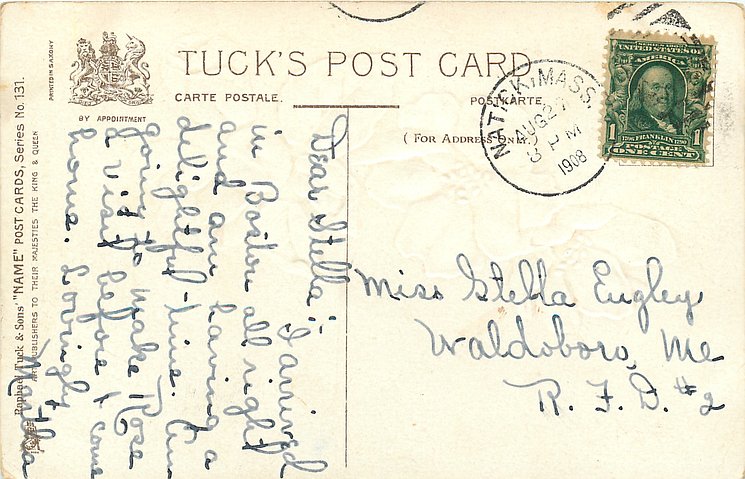 TUCK'S POST CARD
CARTE POSTALE.
POSTKARTE,
BY APPOINTMENT
(FOR ADDRESS ONLY.)
PRINTED IN SAXONY
Raphael Tuck & Sons' "NAME" POST CARDS, Series No. 131.
ART PUBLISHERS TO THEIR MAJESTIES THE KING & QUEEN
NATICK, MASS.
AUG 27
3 PM
1908
SERIES 1902
UNITED STATES OF
AMERICA
1706 FRANKLIN 1790
1 POSTAGE 1
ONE CENT
Dear Stella:- I arrived
in Boston all right
and am having a
delightful time. Am
going to make Rose
a visit before I come
home. Lovingly
Martha
Miss Stella Eugley
Waldoboro, Me
R. F. D. #2